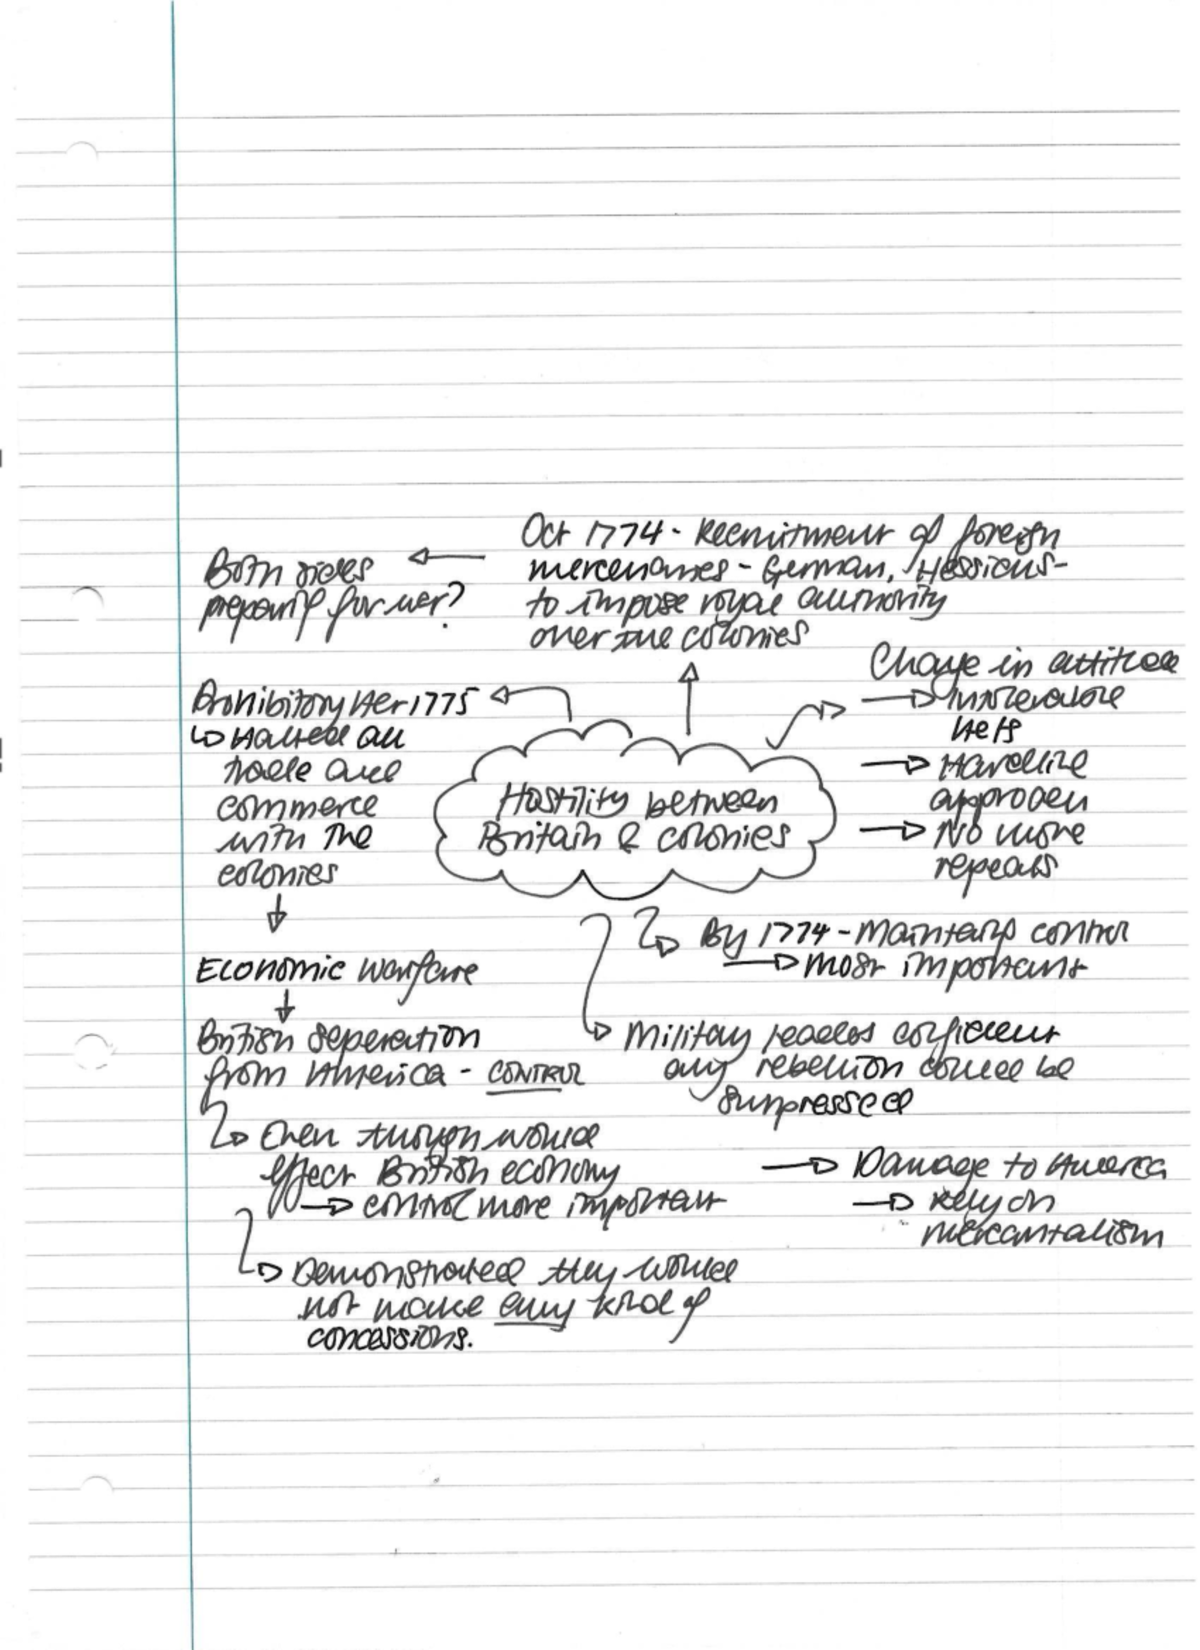 Oct 1774 - Recruitment of foreign
mercenaries - German, Hessians -
to impose royal authority
over the colonies
Both sides
preparing for war?
Change in attitude
→ Intolerable
Acts
→ Hardline
approach
→ No more
repeals
Prohibitory Act 1775
↳ Halted all
trade and
commerce
with the
colonies
Hostility between
Britain & colonies
By 1774 - Maintaing control
→ most important
Economic warfare
British seperation
from America - CONTROL
Military leaders confident
any rebellion could be
suppressed
↳ Even though would
effect British economy
→ control more important
→ Damage to America
→ Rely on
mercantalism
↳ Demonstrated they would
not make any kind of
concessions.